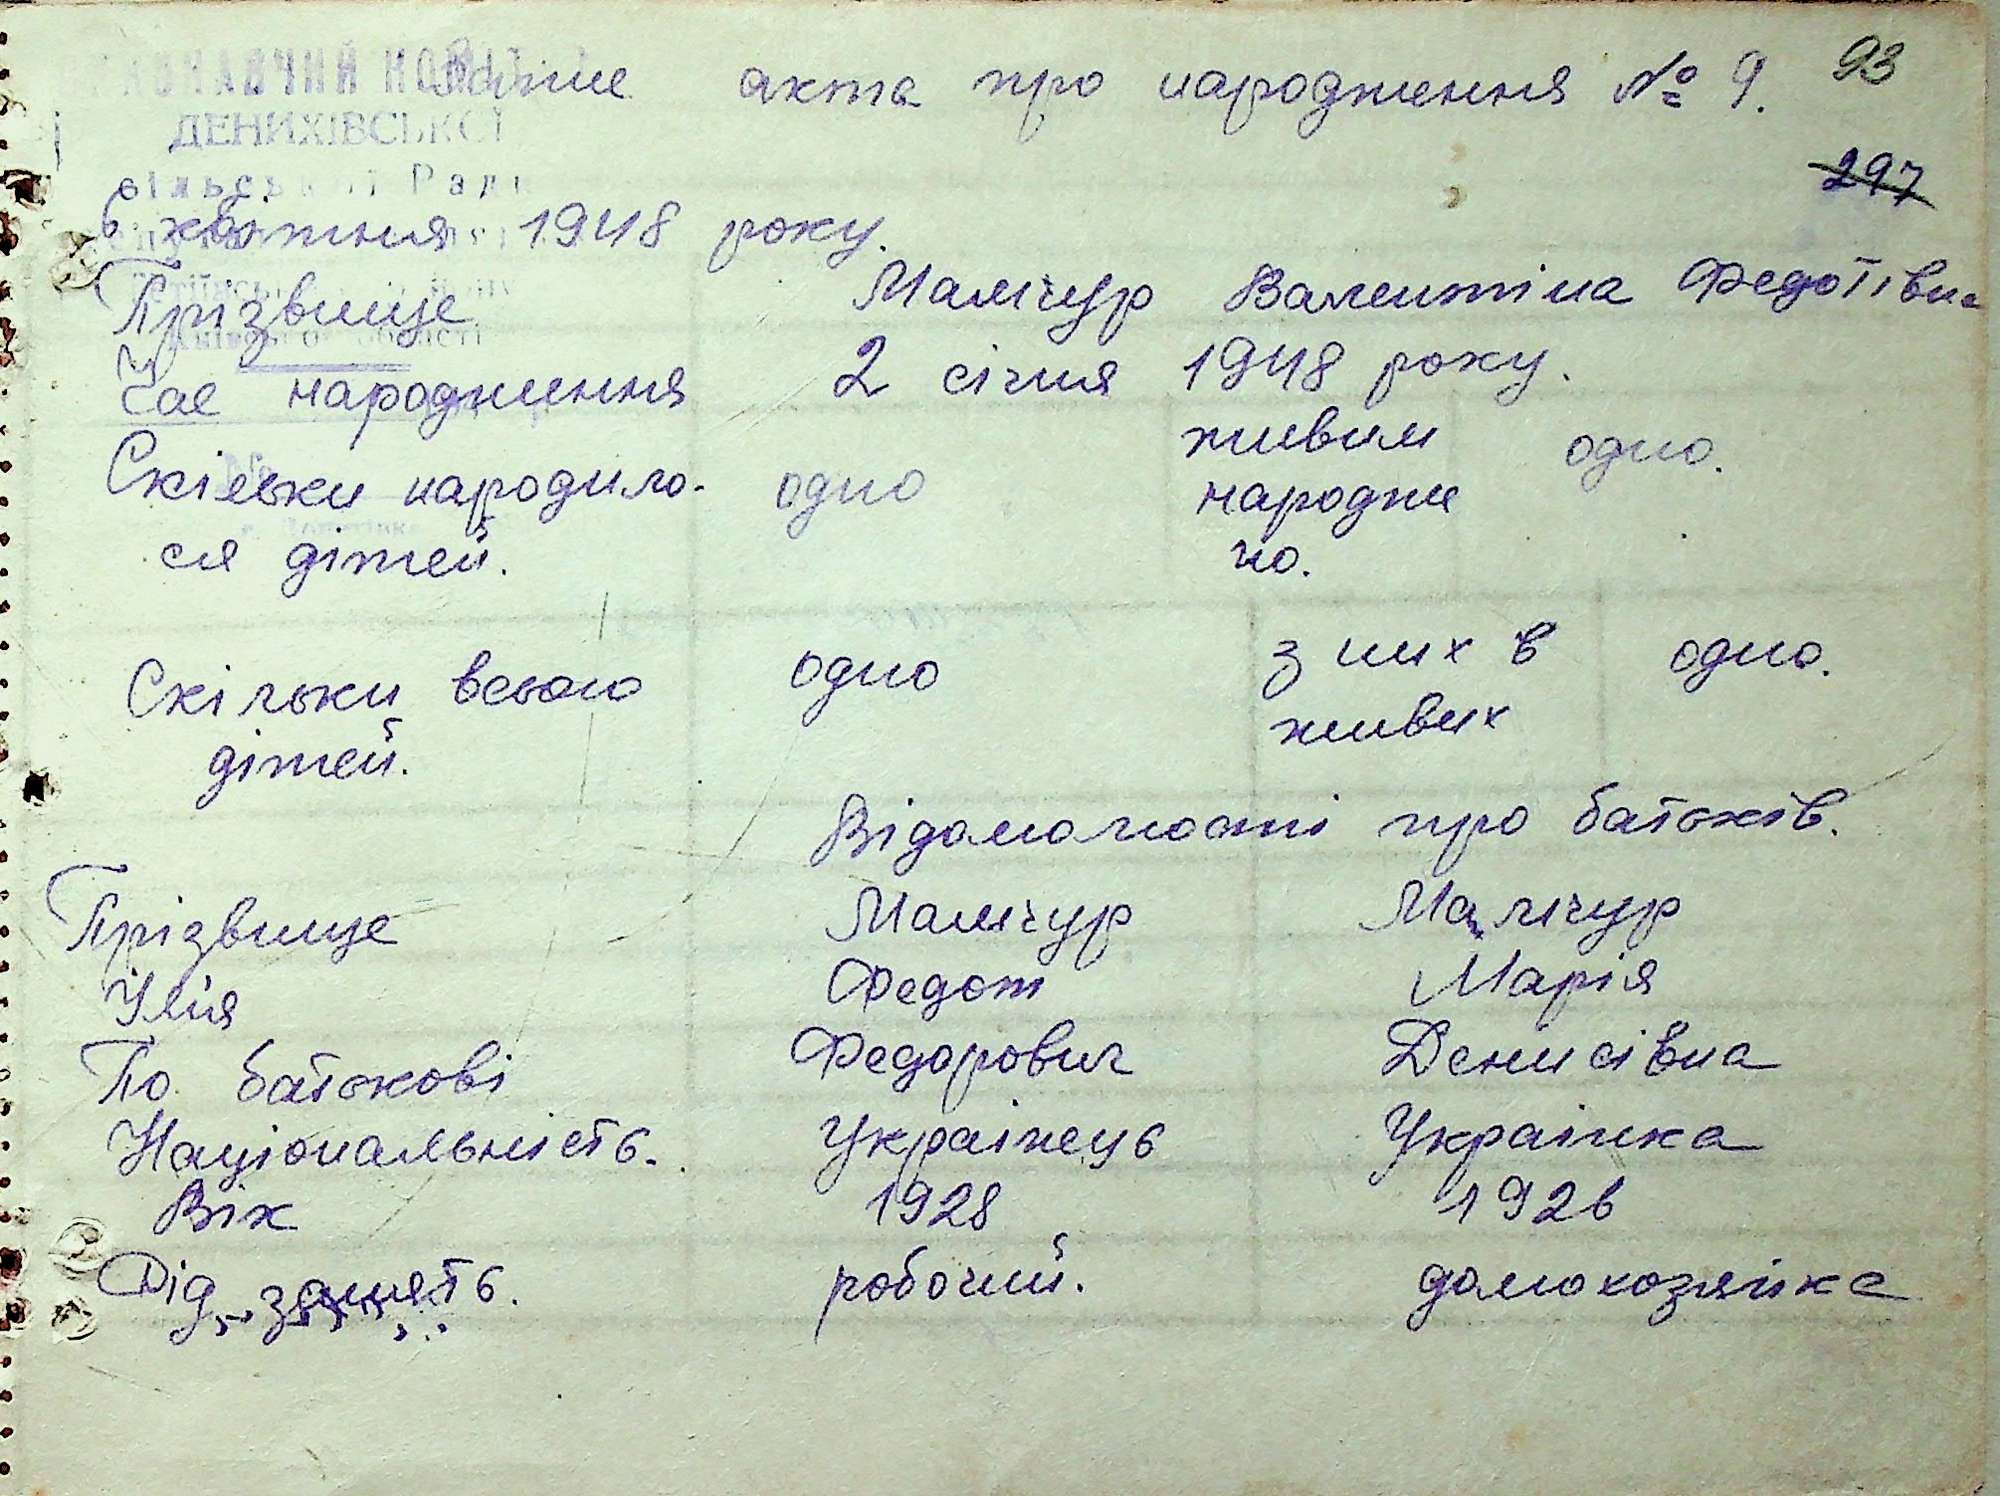 Запис акта про народження № 9. 93
ДЕНИХІВСЬКОЇ
сільської Ради
297
6 квітня 1948 року.
Прізвище Мамчур Валентіна Федотівна
Київської області
Час народження 2 січня 1948 року.
Скільки народило- одно живим одно.
ся дітей. народже
но.
Скільки всього одно з них в одно.
дітей. живих
Відомоности про батьків.
Прізвище Мамчур Мамчур
Імя Федот Марія
По батькові Федорович Денисівна
Національність. Українець Українка
Вік 1928 1926
Рід занять. робочий. домохозяйка